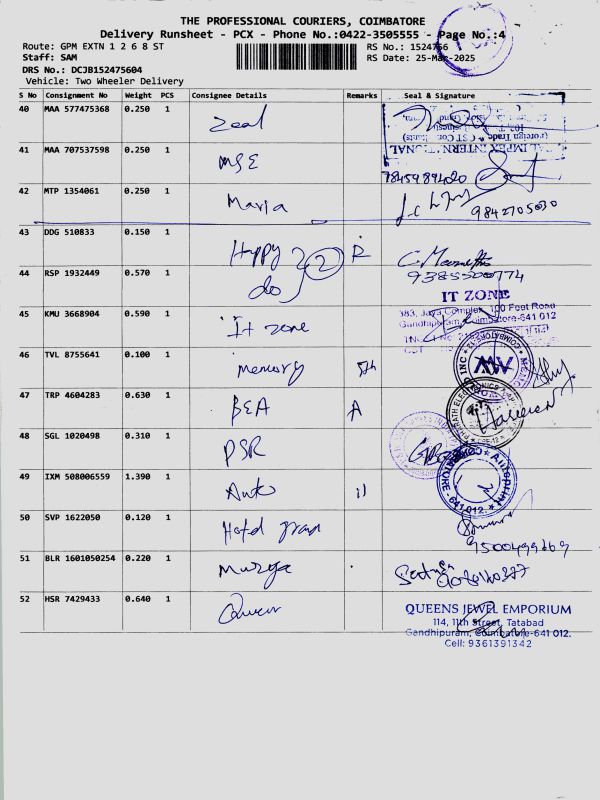 THE PROFESSIONAL COURIERS, COIMBATORE
Delivery Runsheet - PCX - Phone No.:0422-3505555 - Page No.:4
Route: GPM EXTN 1 2 6 8 ST
RS No.: 1524756
Staff: SAM
RS Date: 25-Mar-2025
DRS No.: DCJB152475604
Vehicle: Two Wheeler Delivery
S No Consignment No Weight PCS Consignee Details Remarks Seal & Signature
40 MAA 577475368 0.250 1 Zeal
41 MAA 707537598 0.250 1 MSE
42 MTP 1354061 0.250 1 Maria 9842705030
43 DDG 510833 0.150 1 Happy 22 R
9385500774
44 RSP 1932449 0.570 1 do
IT ZONE
383, Jaya Complex, 100 Feet Road
Gandhipuram, Coimbatore-641 012
45 KMU 3668904 0.590 1 It zone
46 TVL 8755641 0.100 1 memory
47 TRP 4604283 0.630 1 BEA A
48 SGL 1020498 0.310 1 PSR
49 IXM 508006559 1.390 1 Auto 11
50 SVP 1622050 0.120 1 Hotel
9500499169
51 BLR 1601050254 0.220 1
52 HSR 7429433 0.640 1 Queen
QUEENS JEWEL EMPORIUM
114, 11th Street, Tatabad
Gandhipuram, Coimbatore-641 012.
Cell: 9361391342